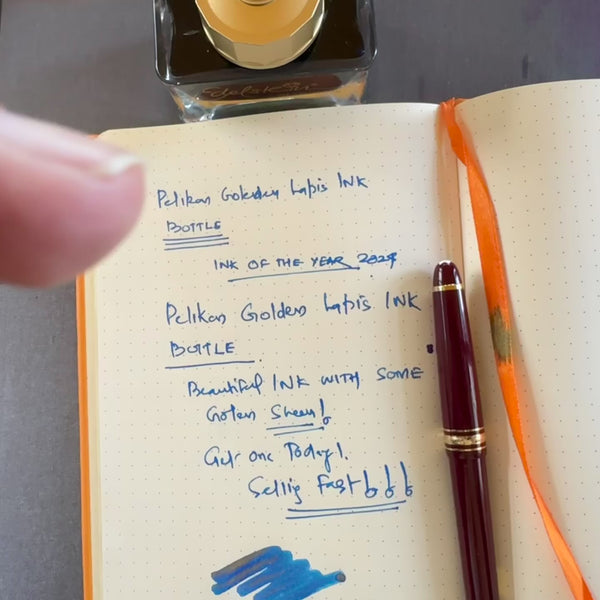 Edelstein
Pelikan Goleden Lapis INK
BOTTLE
INK OF THE YEAR 2024
Pelikan Golden Lapis INK
BOTTLE
Beautiful INK WITH SOME
Golen Sheen!
Get one Today!.
Sellig Fast!!!